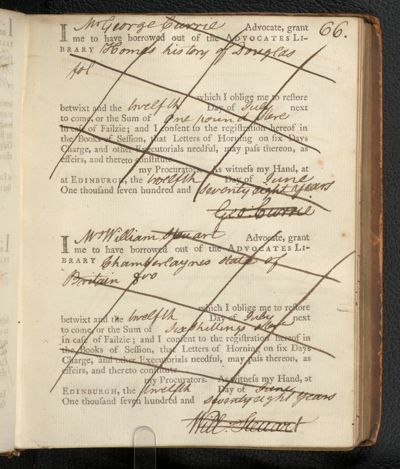 66.
I Mr George Currie Advocate, grant
me to have borrowed out of the ADVOCATES LI-
BRARY Homes history of Douglas
fol
which I oblige me to reſtore
betwixt and the twelfth Day of July next
to come, or the Sum of One pound Ster
in caſe of Failzie; and I conſent to the regiſtration hereof in
the Books of Seſſion, that Letters of Horning on ſix Days
Charge, and other Executorials needful, may paſs thereon, as
effeirs, and thereto conſtitute
my Procurators. As witneſs my Hand, at
at EDINBURGH, the twelfth Day of June
One thouſand ſeven hundred and Seventy eight years
Geo: Currie
I Mr William Steuart Advocate, grant
me to have borrowed out of the ADVOCATES LI-
BRARY Chamberlaynes state of
Britain 8vo
which I oblige me to reſtore
betwixt and the twelfth Day of July next
to come, or the Sum of Six shillings
in caſe of Failzie; and I conſent to the regiſtration hereof in
the Books of Seſſion, that Letters of Horning on ſix Days
Charge, and other Executorials needful, may paſs thereon, as
effeirs, and thereto conſtitute
my Procurators. As witneſs my Hand, at
EDINBURGH, the twelfth Day of June
One thouſand ſeven hundred and Seventy eight years
Will: Steuart